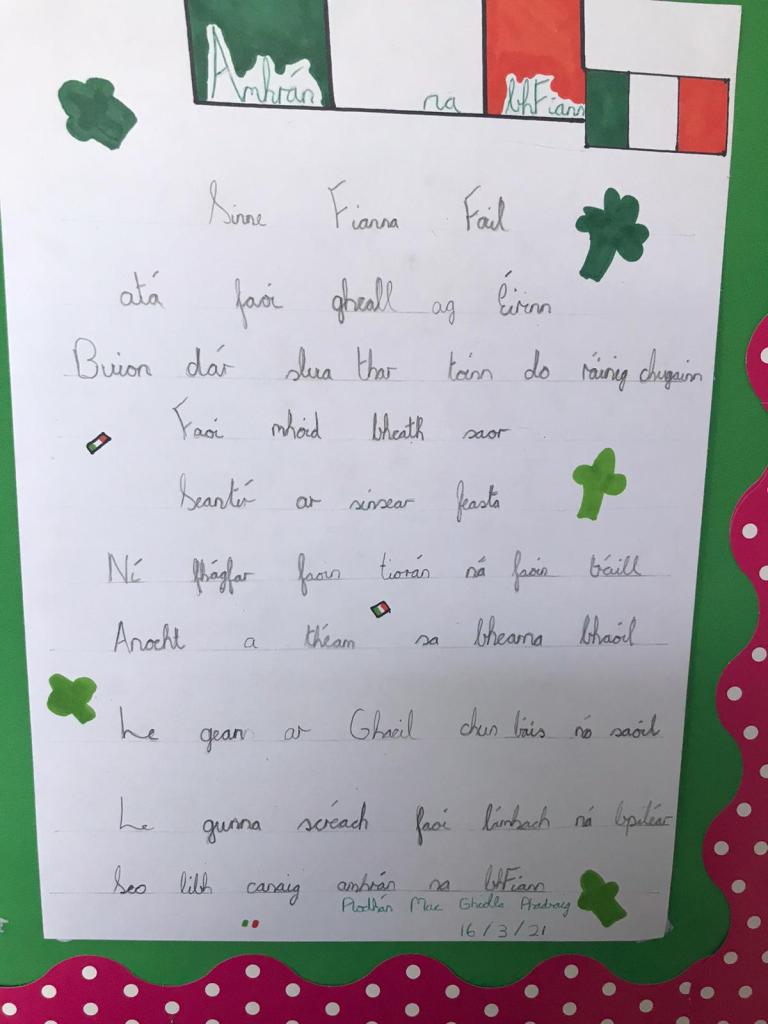 Amhrán na bhFiann
Sinne Fianna Fail
atá faoi gheall ag Éirinn
Buion dár slua thar toinn do ráinig chugainn
Faoi mhóid bheath saor
Seantír ar sinsear feasta
Ní fhágfar faoin tiorán ná faoin tráill
Anocht a théam sa bhearna bhaoil
Le gean ar Ghaeil chun báis nó saoil
Le gunna scréach faoi lámhach ná bpiléar
Seo libh canaig amhrán na bhFiann
Mac Ghiolla Phadraig
16/3/21